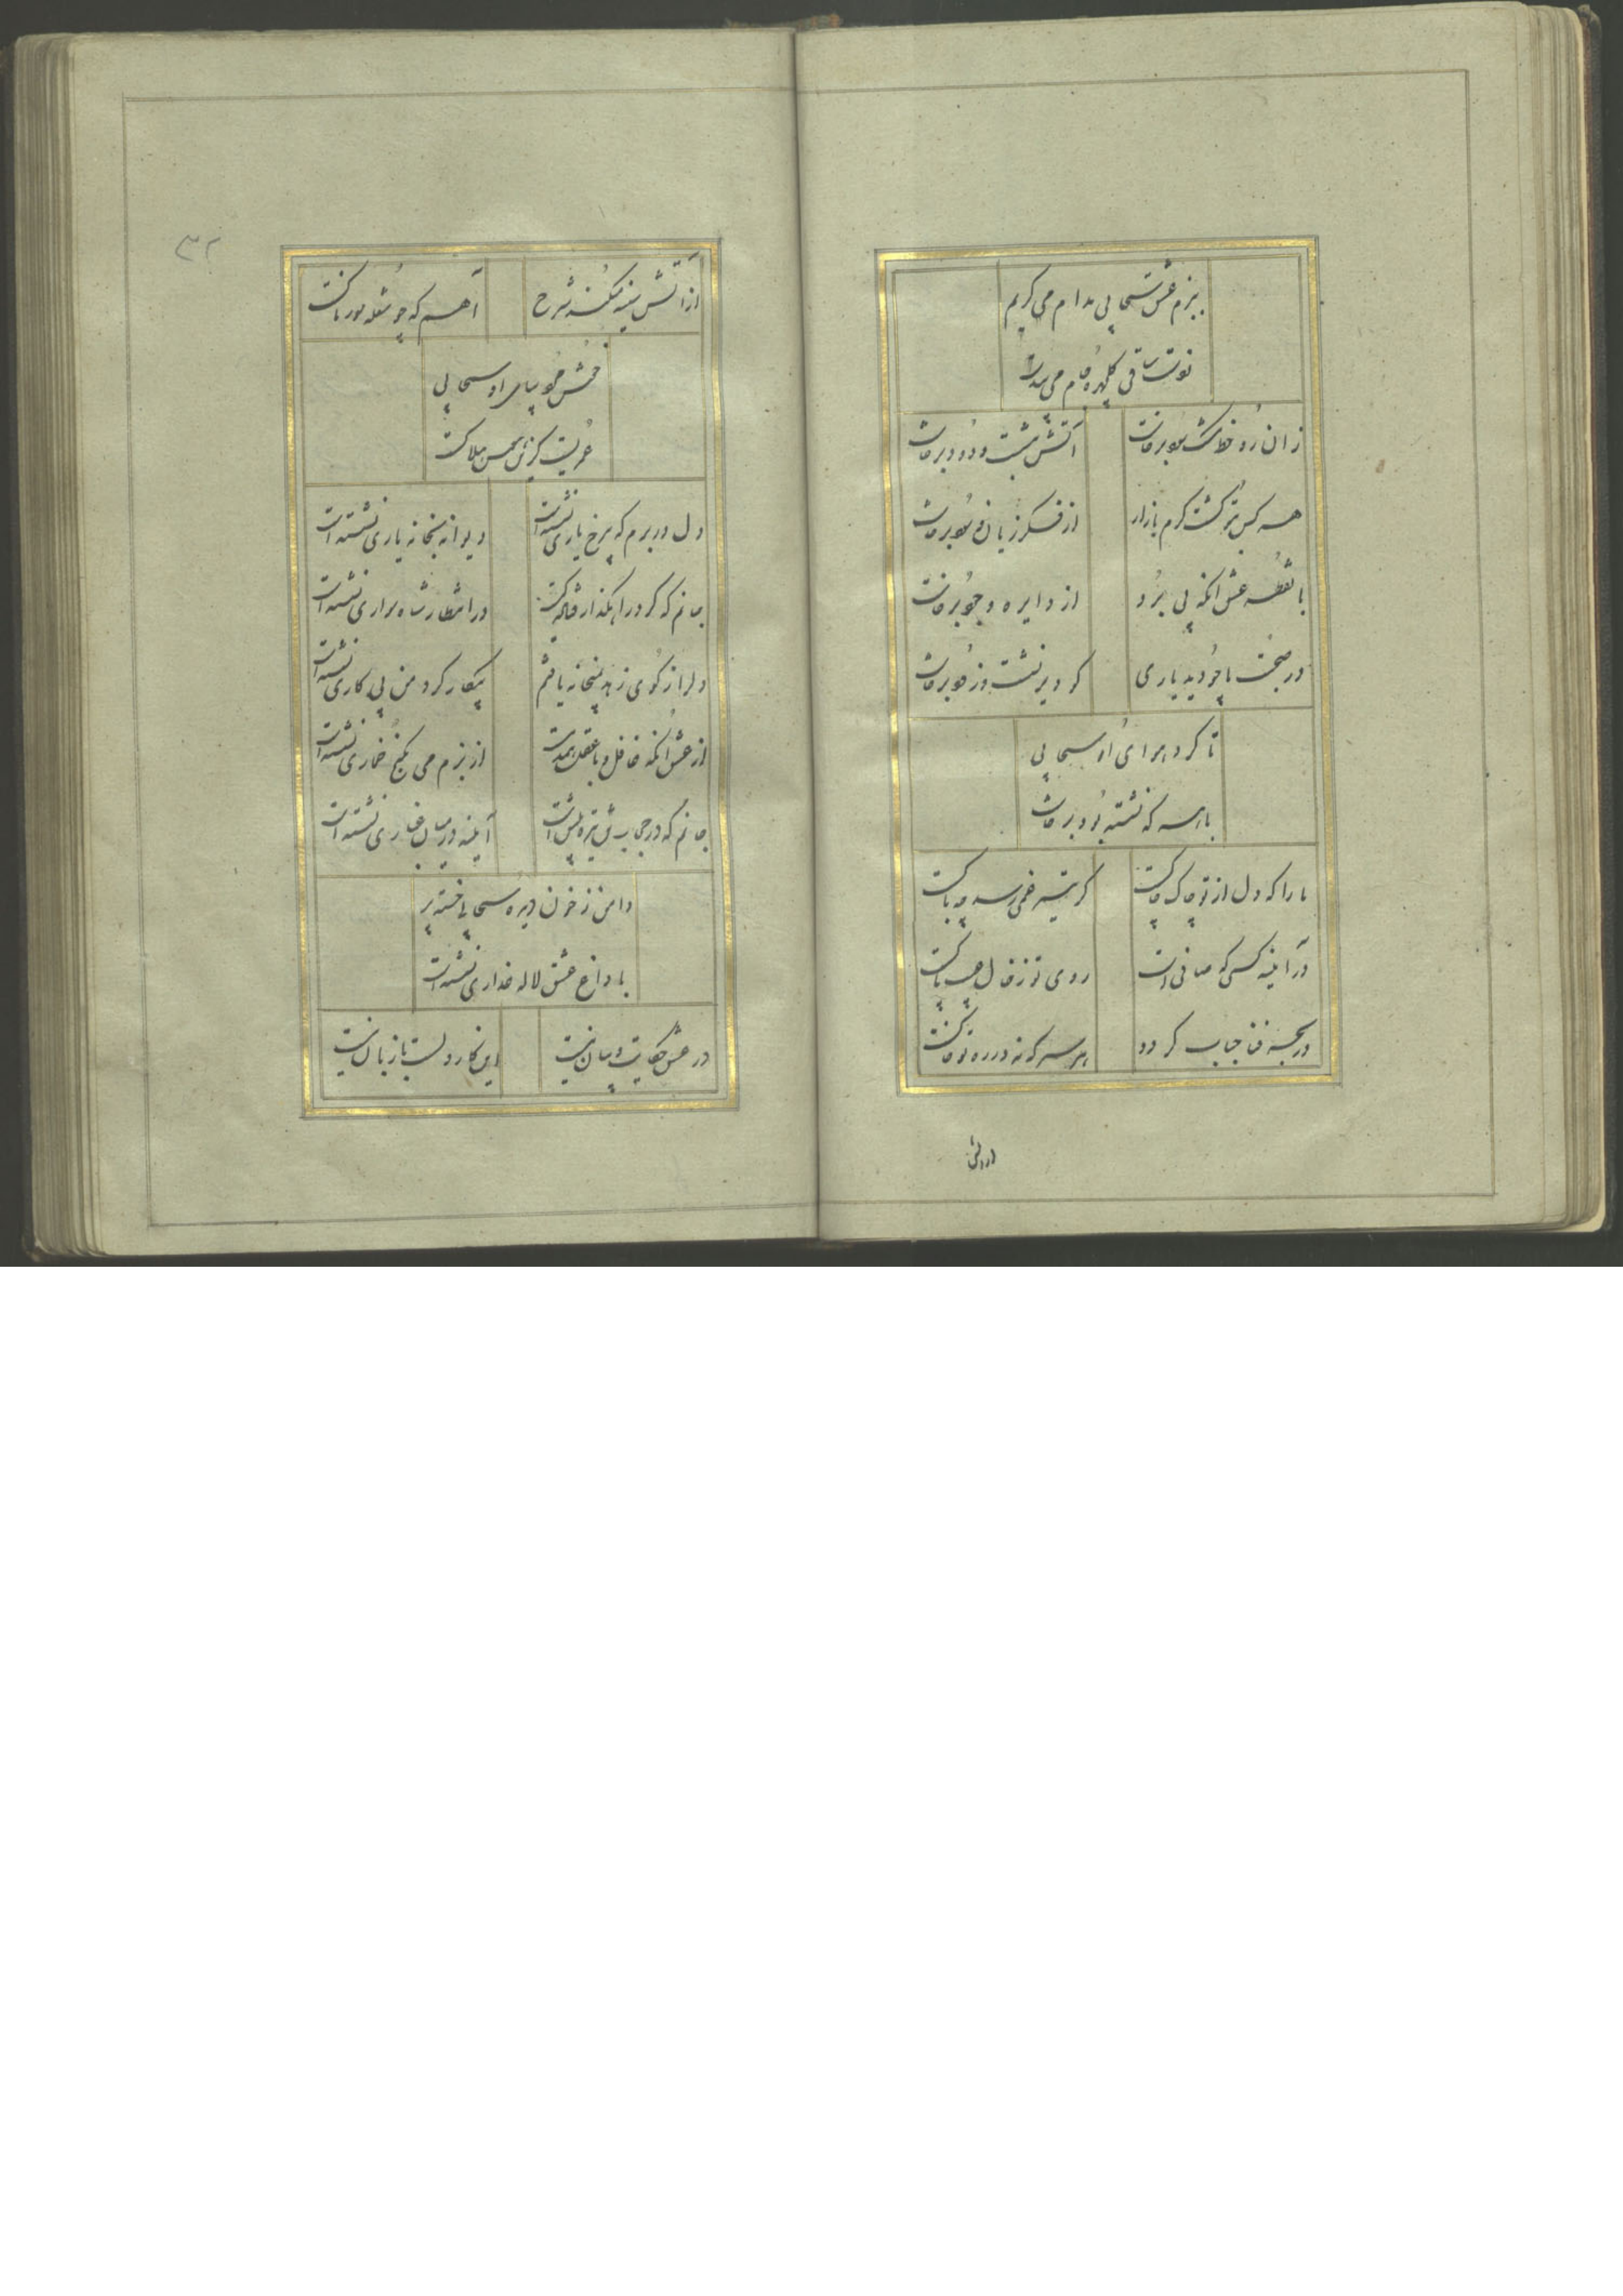 ببزم عشق سحابی مدام می گریم
نوت ساقی گلچهره جام می
زان رو خط مشک بو برخاست
آتش بنشست و دود برخاست
هر کس بتو گشت گرم بازار
از فکر زیان و سود برخاست
با نقطه عشق انکه پی برد
از دایره وجود برخاست
در صحبت ما چو دید یاری
کو دیر نشست و زود برخاست
تا کرد هوای او سحابی
با هر که نشسته بود برخاست
ما را که دل از تو چاک چاکست
گر تیر غمی رسد چه باکست
در آینه کسی که صافی است
روی تو ز قال
در بحر فنا حباب گردد
هر سر که نه در ره تو خاکست
از آتش
از آتش سینه میکند شرح
آهم که چو شعله
خوش جو سحابی
دل در برم که بی رخ یاری نشسته است
دیوانه بتخانه یاری نشسته است
جانم که گرد راهگذار
در انتظار شاه سواری نشسته است
دل را ز کوی زهد بتخانه یافتم
بیکار کرد من پی کاری نشسته است
از عشق انکه غافل و با عقل همدمست
از بزم می بکنج خماری نشسته است
جانم که در حجاب تن تیره است
آینه در میان غباری نشسته است
دامن ز خون دیده سحابی خسته پر
با داغ عشق لاله عذاری نشسته است
در عشق حکایت و بیان نیست
این کار دلست با زبان نیست